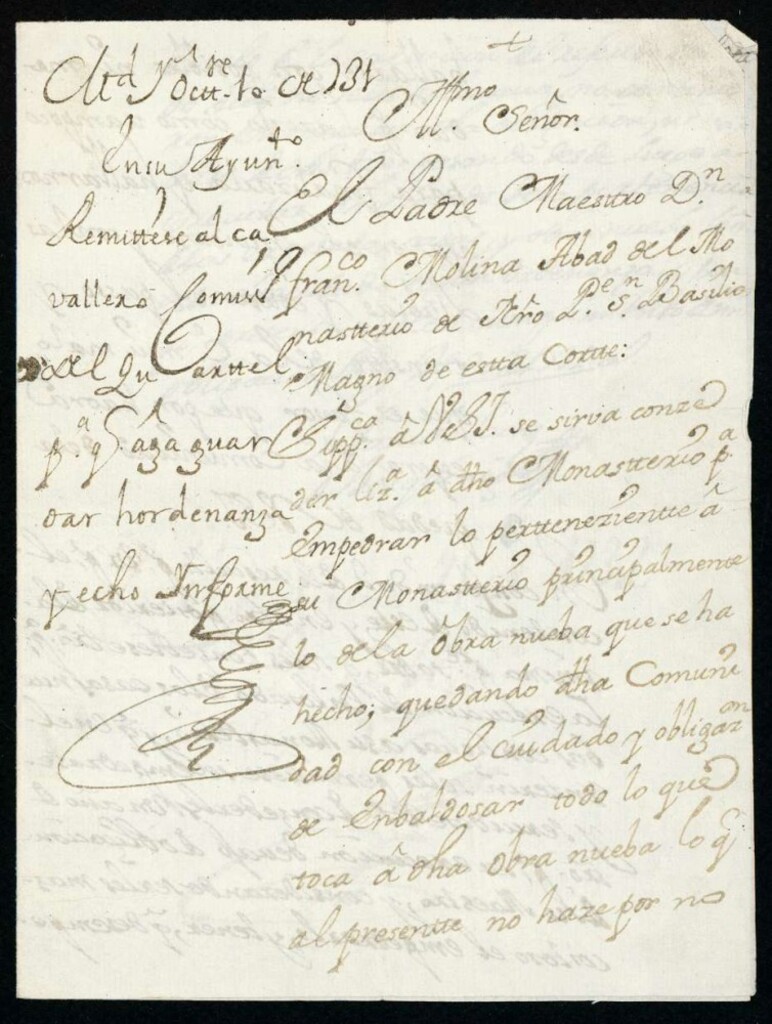 Md y Octt.re 1.o de 731
En su Ayun.to
Remittese al ca
vallero Comis.o
del Quarttel
p.a q.e aga guar
dar hordenanza
y echo Ynforme
+
Ill.mo Señor.
El Padre Maestro D.n
fran.co Molina Abad del Mo
nastterio de Nro P.e S.n Basilio
Magno de estta Cortte:
Supp.ca â V.S.I. se sirva conze
der liz.a â dho Monastterio p.a
empedrar lo pertteneziente â
su Monastterio principalmente
lo de la obra nueba que se ha
hecho; quedando dha Comuni
dad con el cuidado y obligaz.on
de enbaldosar todo lo que
toca â dha obra nueba lo q.
al presentte no haze por no